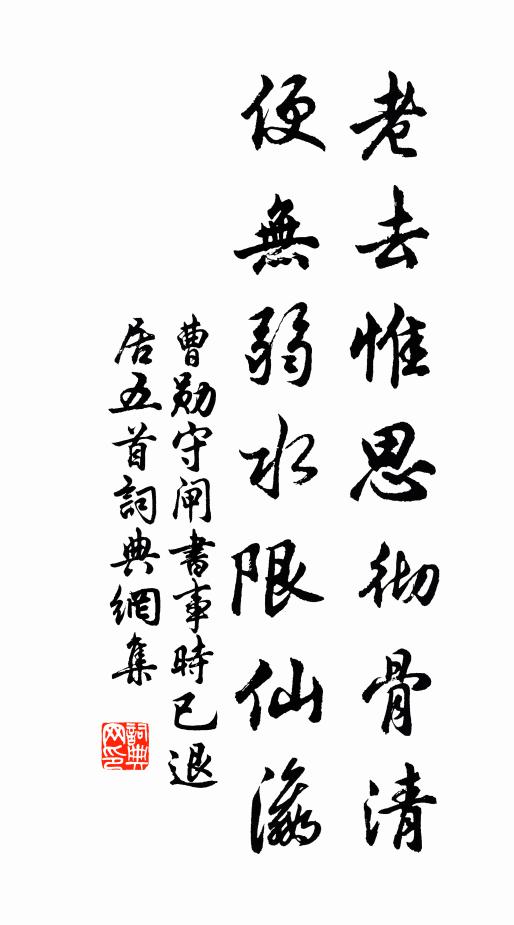 老去惟思彻骨清
便無弱水限仙瀛
曹勛守闸書事時已退
居五首詞典網集
詞典網印